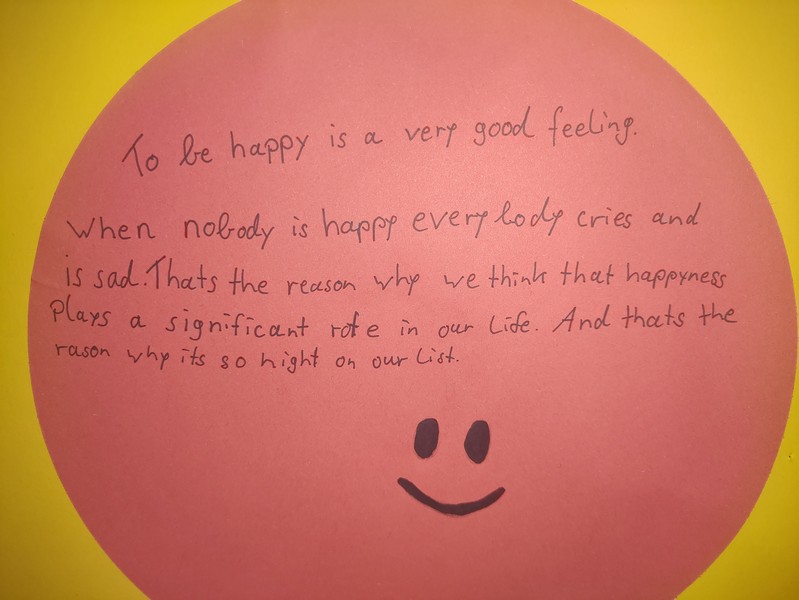 To be happy is a very good feeling.
When nobody is happy everybody cries and
is sad. Thats the reason why we think that happyness
plays a significant role in our Life. And thats the
rason why its so hight on our List.